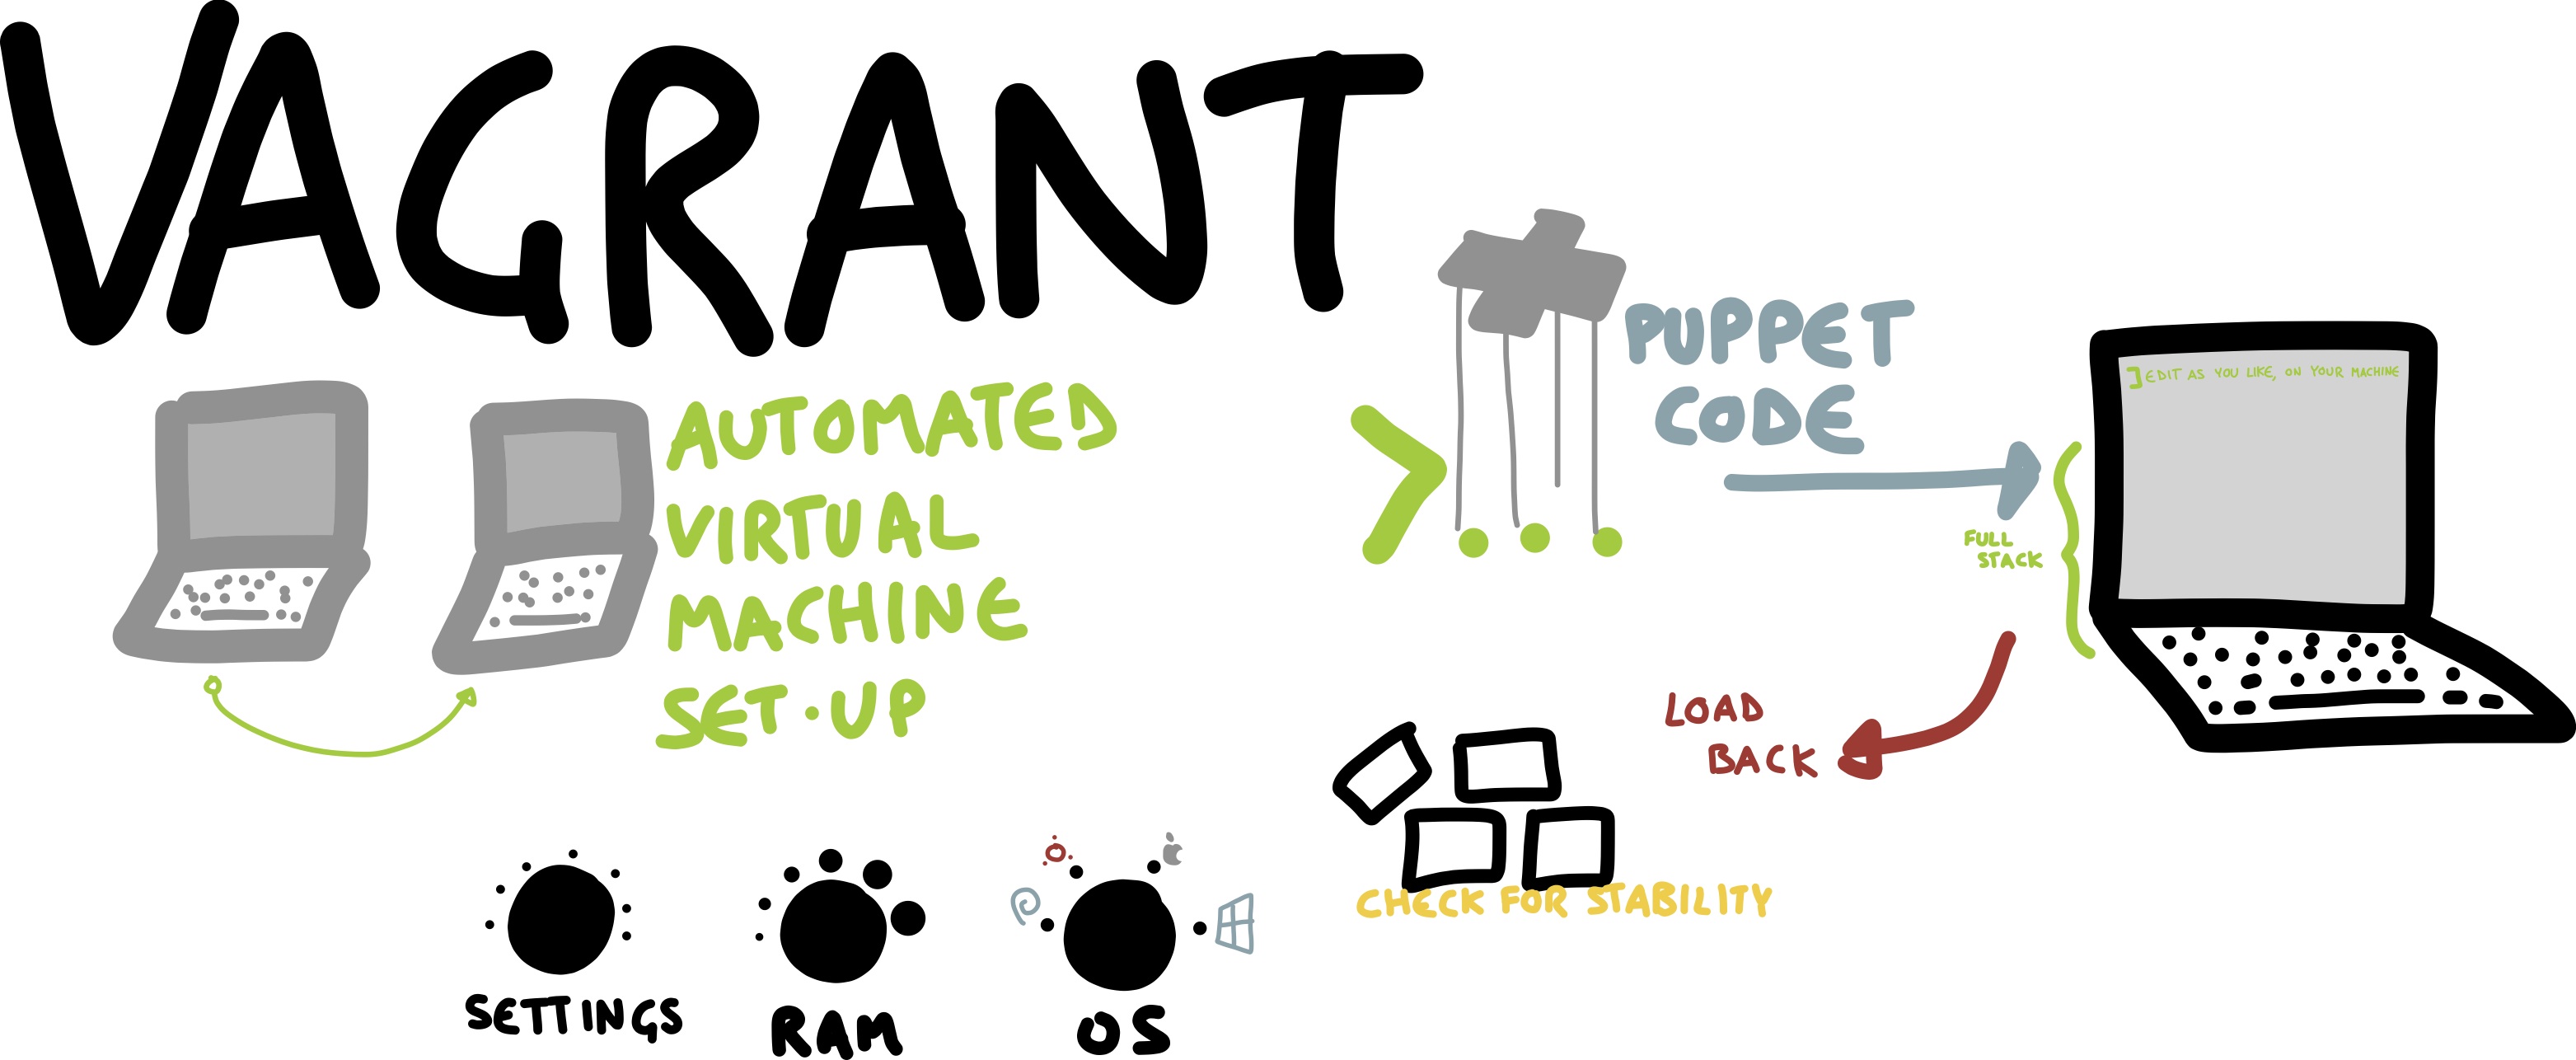 VAGRANT
AUTOMATED
VIRTUAL
MACHINE
SET·UP
SETTINGS
RAM
OS
PUPPET
CODE
] EDIT AS YOU LIKE, ON YOUR MACHINE
FULL
STACK
LOAD
BACK
CHECK FOR STABILITY